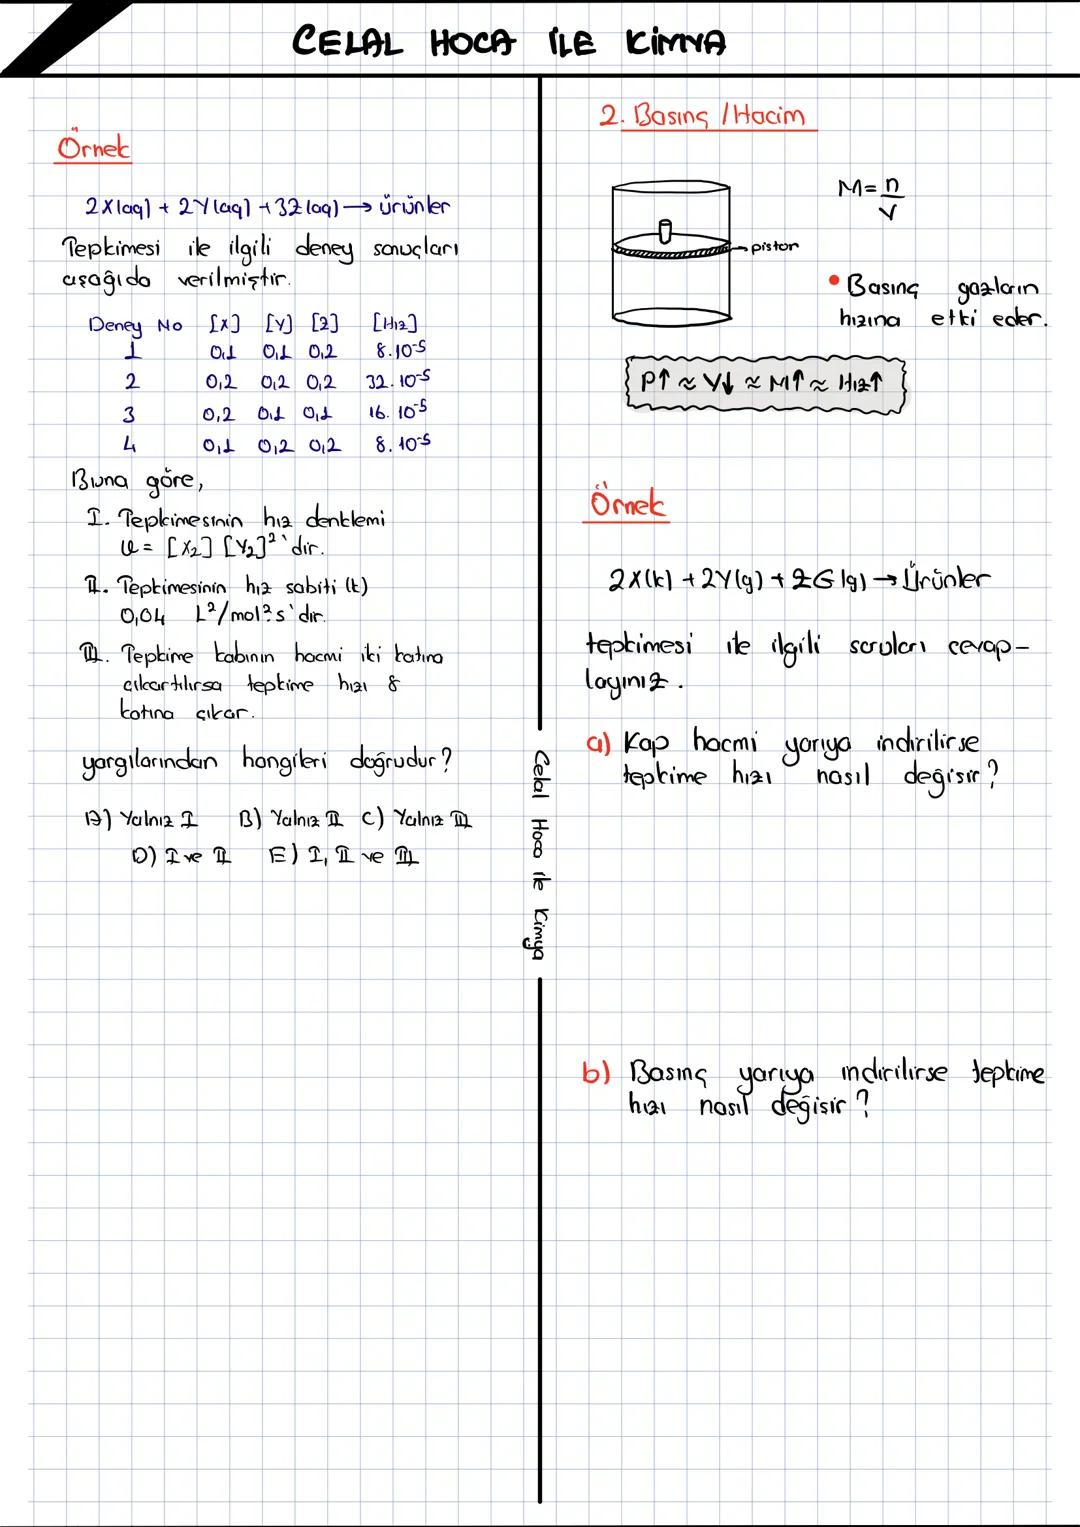 CELAL HOCA İLE KİMYA
Örnek
2X(aq) + 2Y(aq) + 3Z(aq) → ürünler
Tepkimesi ile ilgili deney sonuçları
aşağıda verilmiştir.
Deney No [X] [Y] [Z] [Hız]
1 0,1 0,1 0,2 8.10⁻⁵
2 0,2 0,2 0,2 32.10⁻⁵
3 0,2 0,1 0,1 16.10⁻⁵
4 0,1 0,2 0,2 8.10⁻⁵
Buna göre,
I. Tepkimesinin hız denklemi
ϑ = [X₂] [Y₂]²'dir.
II. Tepkimesinin hız sabiti (k)
0,04 L²/mol².s'dir.
III. Tepkime kabının hacmi iki katına
çıkartılırsa tepkime hızı 8
katına çıkar.
yargılarından hangileri doğrudur?
A) Yalnız I B) Yalnız II C) Yalnız III
D) I ve II E) I, II ve III
Celal Hoca ile Kimya
2. Basınç / Hacim
M = n/V
piston
• Basınç gazların
hızına etki eder.
P↑ ≈ V↓ ≈ M↑ ≈ Hız↑
Örnek
2X(k) + 2Y(g) + 2G(g) → Ürünler
tepkimesi ile ilgili soruları cevap-
layınız.
a) Kap hacmi yarıya indirilirse
tepkime hızı nasıl değişir?
b) Basınç yarıya indirilirse tepkime
hızı nasıl değişir?